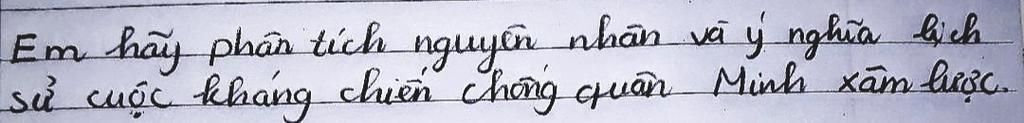 Em hãy phân tích nguyên nhân và ý nghĩa lịch
sử cuộc kháng chiến chống quân Minh xâm lược.